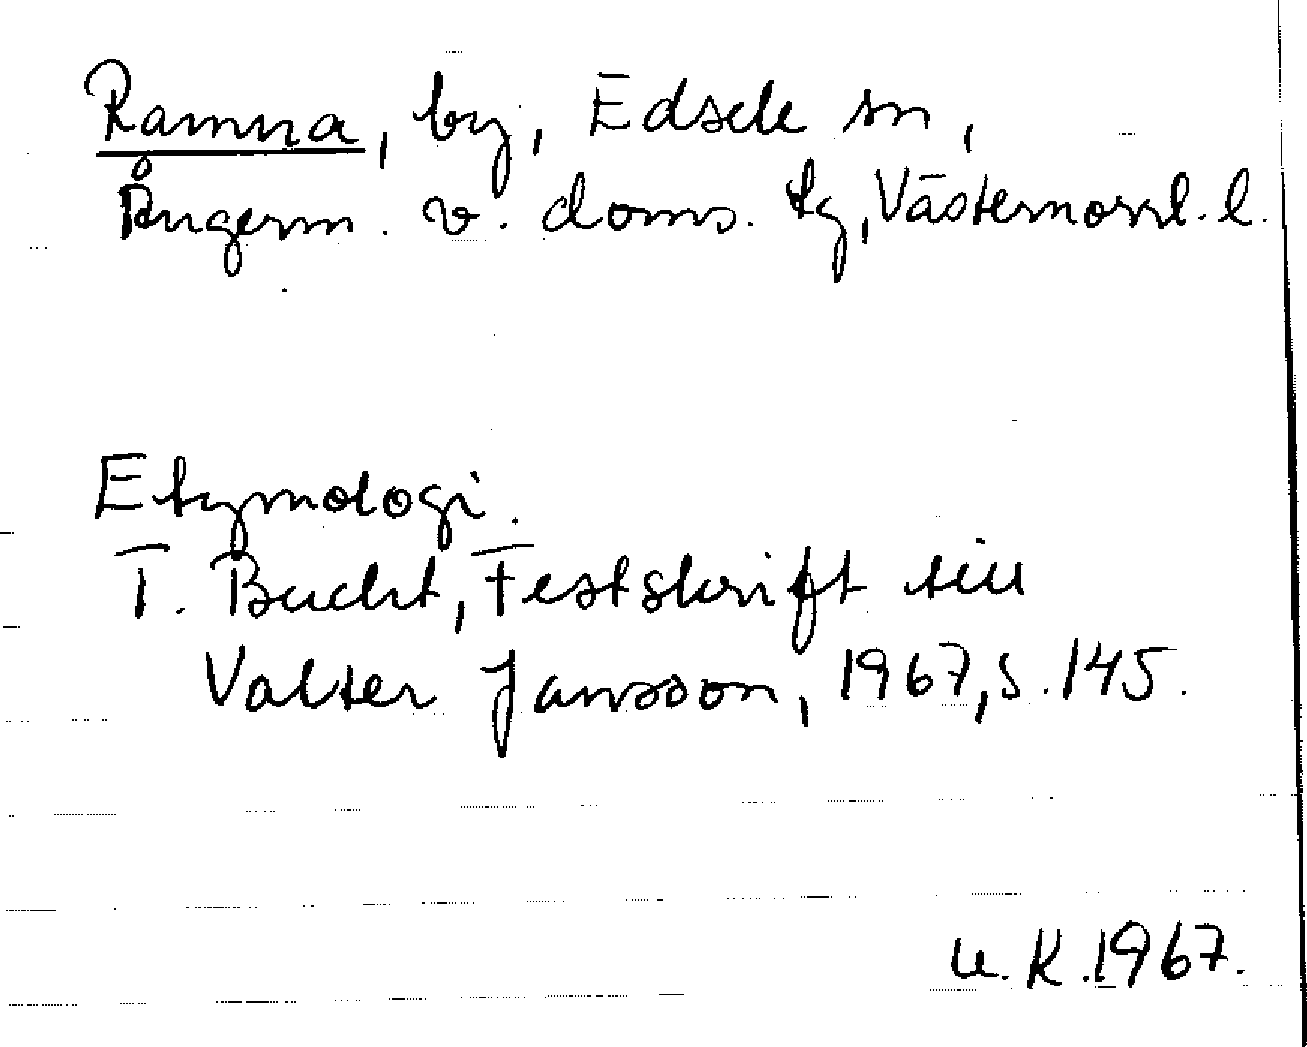 Ramna, by, Edsele sn,
Ångerm. v. doms. tg, Västernorrl. l.
Etymologi.
T. Bucht, Festskrift till
Valter Jansson, 1967, s. 145.
U. K. 1967.